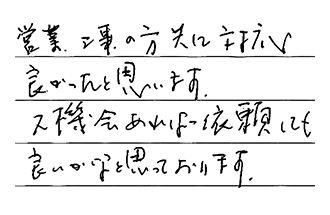 営業、工事の方共に対応
良かったと思います。
又機会あれば依頼しても
良いかなと思っております。